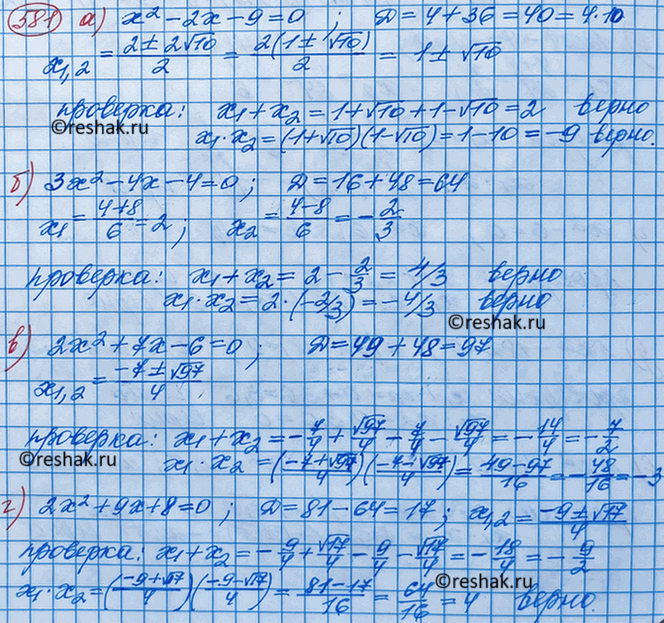 581 а) x² - 2x - 9 = 0 ; D = 4 + 36 = 40 = 4·10
x₁,₂ = (2 ± 2√10)/2 = 2(1 ± √10)/2 = 1 ± √10
проверка: x₁ + x₂ = 1 + √10 + 1 - √10 = 2 верно
©reshak.ru
x₁ · x₂ = (1 + √10)(1 - √10) = 1 - 10 = -9 верно.
©reshak.ru
б) 3x² - 4x - 4 = 0 ; D = 16 + 48 = 64
x₁ = (4+8)/6 = 2 ; x₂ = (4-8)/6 = -2/3
проверка: x₁ + x₂ = 2 - 2/3 = 4/3 верно
x₁ · x₂ = 2 · (-2/3) = -4/3 верно
©reshak.ru
в) 2x² + 7x - 6 = 0 ; D = 49 + 48 = 97
x₁,₂ = (-7 ± √97)/4
проверка: x₁ + x₂ = -7/4 + √97/4 - 7/4 - √97/4 = -14/4 = -7/2
©reshak.ru
x₁ · x₂ = ((-7 + √97)/4)((-7 - √97)/4) = (49 - 97)/16 = -48/16 = -3
г) 2x² + 9x + 8 = 0 ; D = 81 - 64 = 17 ; x₁,₂ = (-9 ± √17)/4
проверка: x₁ + x₂ = -9/4 + √17/4 - 9/4 - √17/4 = -18/4 = -9/2
x₁ · x₂ = ((-9 + √17)/4)((-9 - √17)/4) = (81 - 17)/16 = 64/16 = 4 верно.
©reshak.ru